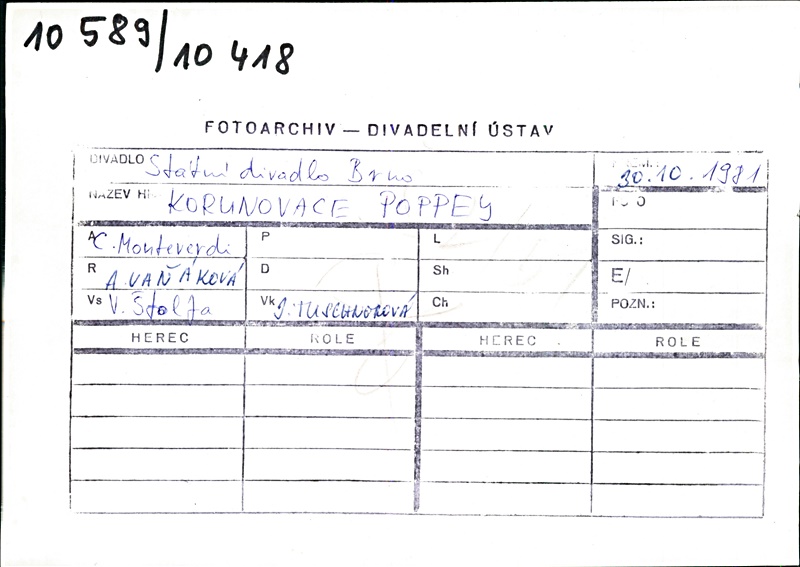 10 589/10 418
FOTOARCHIV — DIVADELNÍ ÚSTAV
DIVADLO Státní divadlo Brno
30.10.1981
NÁZEV HRY KORUNOVACE POPPEY
FOTO
A C. Monteverdi P L SIG.:
R A. VAŇÁKOVÁ D Sh E/
Vs V. Štolfa Vk J. TUSCHNEROVÁ Ch POZN.:
HEREC ROLE HEREC ROLE